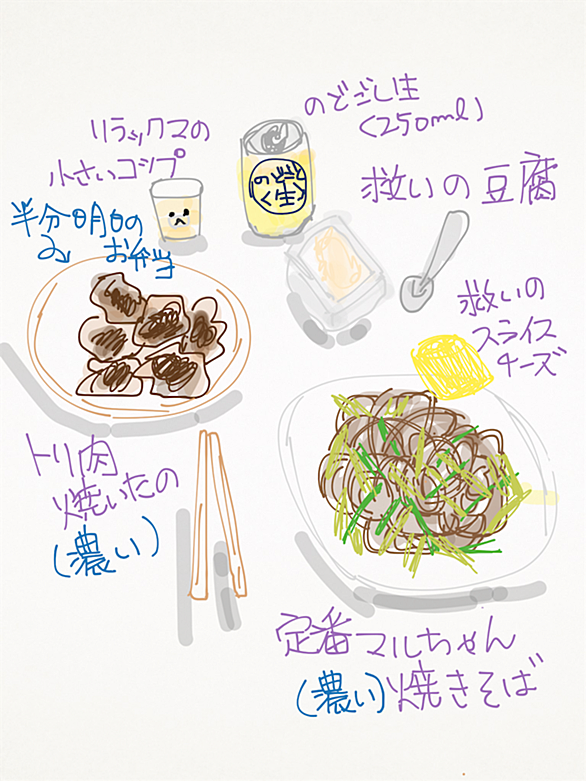 のどごし生
(250ml)
リラックマの
小さいコップ
のどごし
〈生〉
救いの豆腐
半分明日の
お弁当
救いの
スライス
チーズ
トリ肉
焼いたの
(濃い)
定番マルちゃん
(濃い)焼きそば